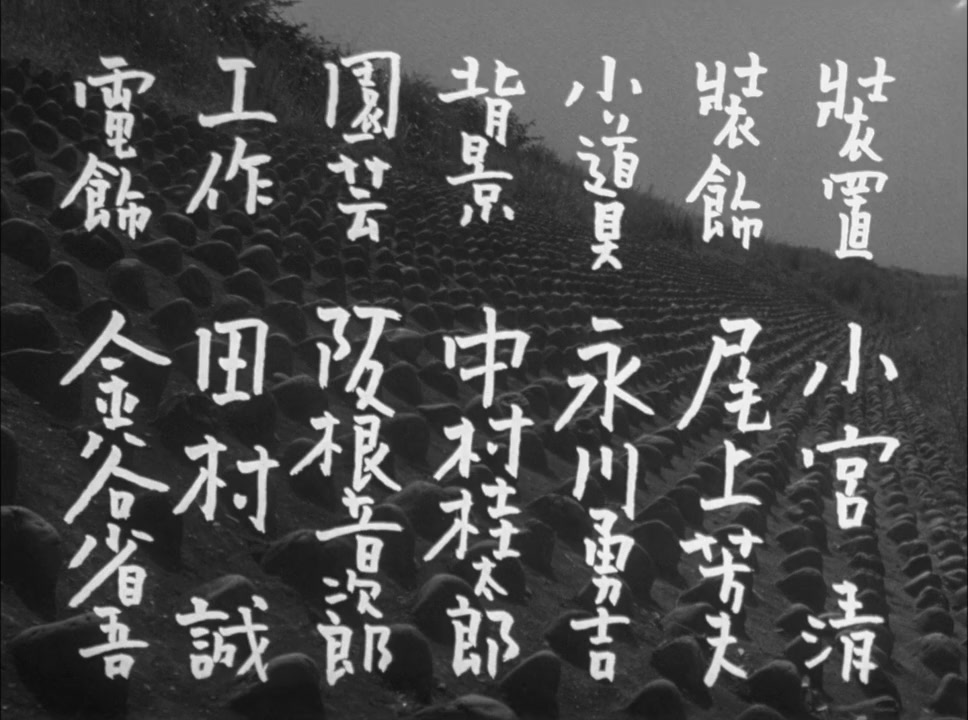 裝置 小宮清
裝飾 尾上芳夫
小道具 永川勇吉
背景 中村桂太郎
園芸 阪根音次郎
工作 田村誠
電飾 金谷省吾